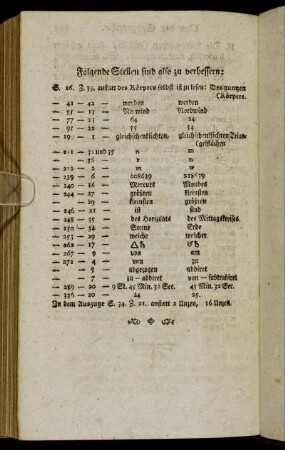 Folgende Stellen sind also zu verbessern:
S. 26. Z. 39. anstatt des Körpers selbst ist zu lesen: Des ganzen
(Körpers.
— 41 — 42 — worden werden
— 55 — 17 — Nordwind
— 77 — 21 — 64 24
— 97 — 22 — 55 54
— 191 — 1 — gleichschenklichten, gleichschenklichten
— 32 und 35 n m
— 36 — r n
— 272 — 2 — m w
— 239 — 6 — 208639 218639
— 240 — 16 — Mercurs Mondes
— 244 — 27 — größten kleinsten
— 29 — kleinsten größten
— 246 — 21 — ist sind
— 248 — 35 — des Horizonts des Mittagskreises.
— 250 — 34 — Sonne Erde
— 253 — 29 — welche welcher
— 262 — 17 — △♄ ♂♄
— 267 — 9 — von am
— 272 — 4 — von zu
— 5 — abgezogen addiret
— 7 — zu — addiret von — subtrahiret
— 289 — 20 — 9 St. 45 Min. 32 Sec. 45 Min. 32 Sec.
— 336 — 20 — 24 25.
In dem Auszuge S. 34. Z. 21. anstatt 2 Unzen, 16 Unzen.